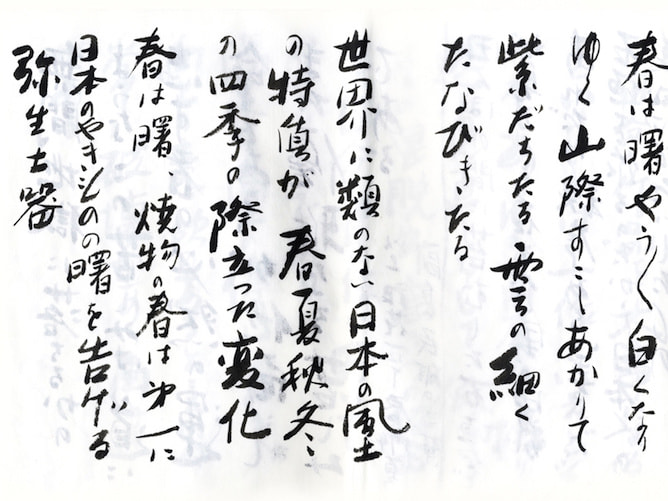 春は曙やう〱白くなり
ゆく山際すこしあかりて
紫だちたる雲の細く
たなびきたる
世界に類のない日本の風土
の特質が春夏秋冬
の四季の際立った変化
春は曙、焼物の春は第一に
日本のやきものの曙を告げる
弥生土器